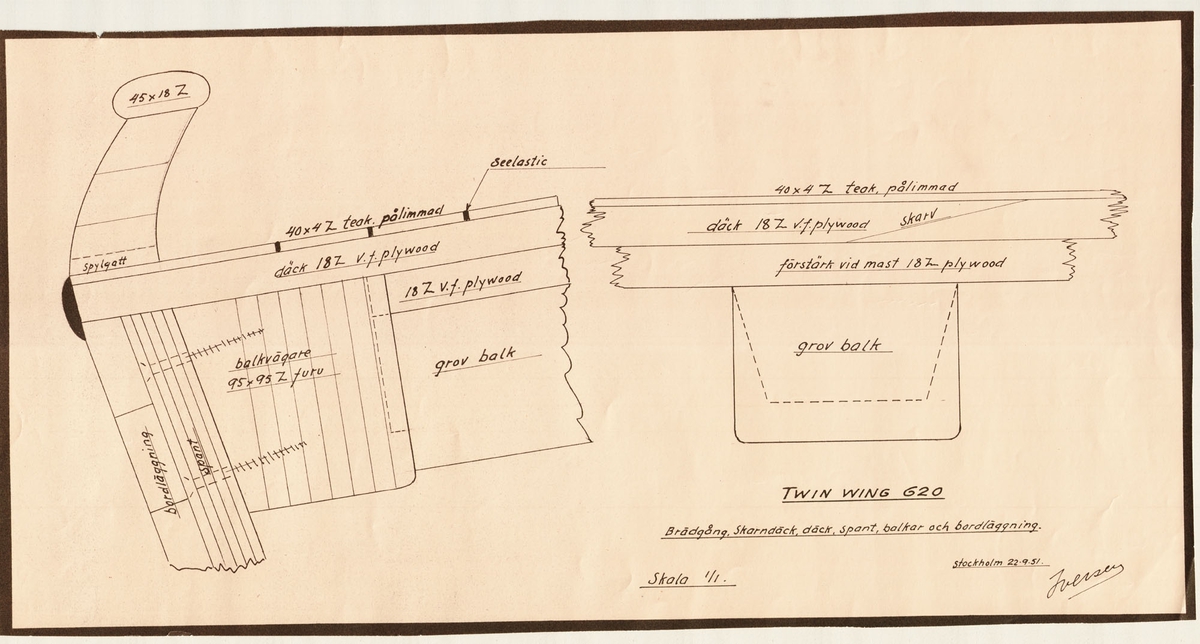 45x18 Z
Seelastic
40x4 Z teak. pålimmad
däck 18 Z v.f. plywood
18 Z v.f. plywood
spylgatt
balkvägare
95x95 Z furu
grov balk
bordläggning
spant
40x4 Z teak, pålimmad
däck 18 Z v.f. plywood
skarv
förstärk vid mast 18 Z plywood
grov balk
TWIN WING G20
Brädgång, Skarndäck, däck, spant, balkar och bordläggning.
Stockholm 22.9.51.
Skala 1/1.
Iversen